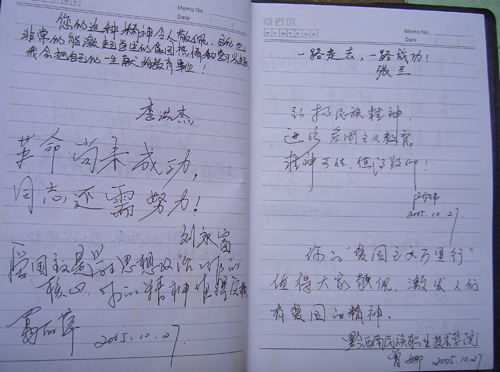 Memo No.
Date
您的这种精神令人敬佩，
非常的能激起学生的爱国热情和学习
我会把自己的一生献给教育事业！
李洪杰
革命尚未成功，
同志还需努力！
刘永富
爱国主义是学校思想政治工作的
核心，你的精神值得
2005.10.27.
Memo No.
Date
一路走去，一路成功！
张兰
弘扬民族精神，
进行爱国主义教育，
精神可佳，值得敬仰！
2005.10.27.
你的“爱国主义万里行”
值得大家敬佩，激发人们
有爱国的精神。
黔西南民族职业技术学院
2005.10.27